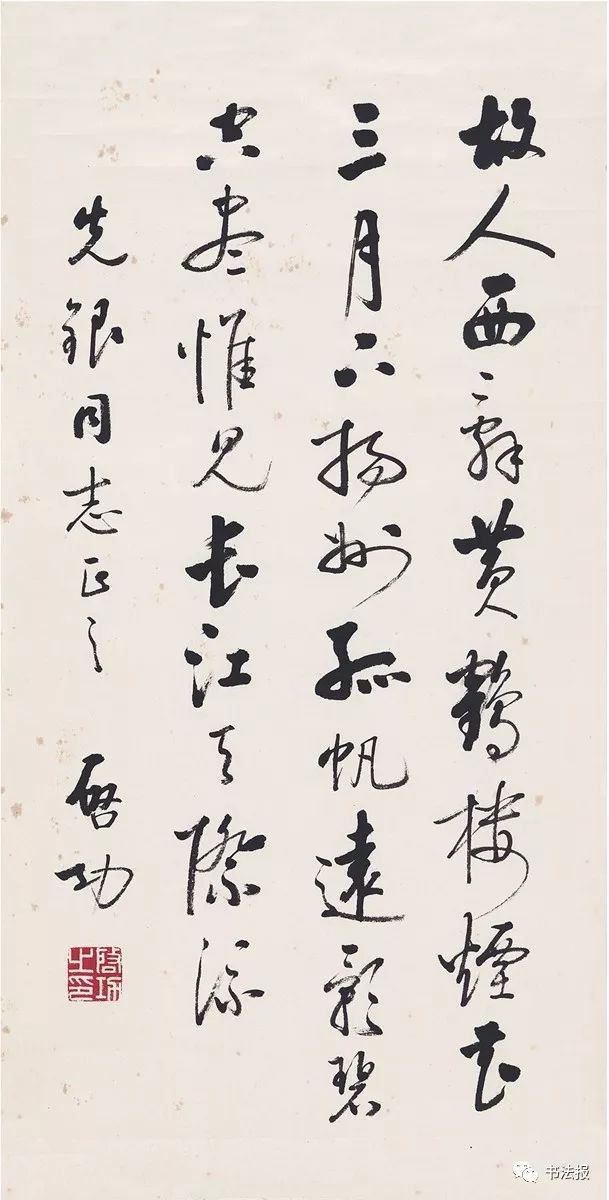 故人西辭黄鶴樓煙花
三月下揚州孤帆遠影碧
空盡惟見長江天際流
先銀同志正之 啓功
啓功之印
书法报